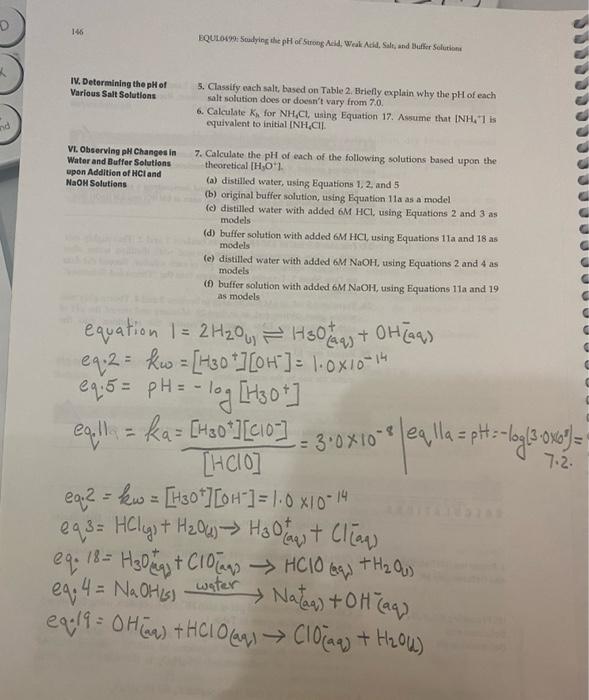 146
EQUL0499: Studying the pH of Strong Acid, Weak Acid, Salt, and Buffer Solutions
IV. Determining the pH of
Various Salt Solutions
5. Classify each salt, based on Table 2. Briefly explain why the pH of each
salt solution does or doesn't vary from 7.0.
6. Calculate Kₕ for NH₄Cl, using Equation 17. Assume that [NH₄⁺] is
equivalent to initial [NH₄Cl].
VI. Observing pH Changes in
Water and Buffer Solutions
upon Addition of HCl and
NaOH Solutions
7. Calculate the pH of each of the following solutions based upon the
theoretical [H₃O⁺].
(a) distilled water, using Equations 1, 2, and 5
(b) original buffer solution, using Equation 11a as a model
(c) distilled water with added 6M HCl, using Equations 2 and 3 as
models
(d) buffer solution with added 6M HCl, using Equations 11a and 18 as
models
(e) distilled water with added 6M NaOH, using Equations 2 and 4 as
models
(f) buffer solution with added 6M NaOH, using Equations 11a and 19
as models
equation 1 = 2H2O(l) ⇌ H3O⁺(aq) + OH⁻(aq)
eq.2 = kw = [H3O⁺][OH⁻] = 1.0×10⁻¹⁴
eq.5 = pH = - log [H3O⁺]
eq.11a = ka = [H3O⁺][ClO⁻] / [HClO] = 3.0×10⁻⁸ | eq 11a = pH = -log(3.0×10⁸) = 7.2.
eq.2 = kw = [H3O⁺][OH⁻] = 1.0 ×10⁻¹⁴
eq 3 = HCl(g) + H2O(l) → H3O⁺(aq) + Cl⁻(aq)
eq. 18 = H3O⁺(aq) + ClO⁻(aq) → HClO (aq) + H2O(l)
eq. 4 = NaOH(s) water → Na⁺(aq) + OH⁻(aq)
eq.19 = OH⁻(aq) + HClO(aq) → ClO⁻(aq) + H2O(l)
D
nd